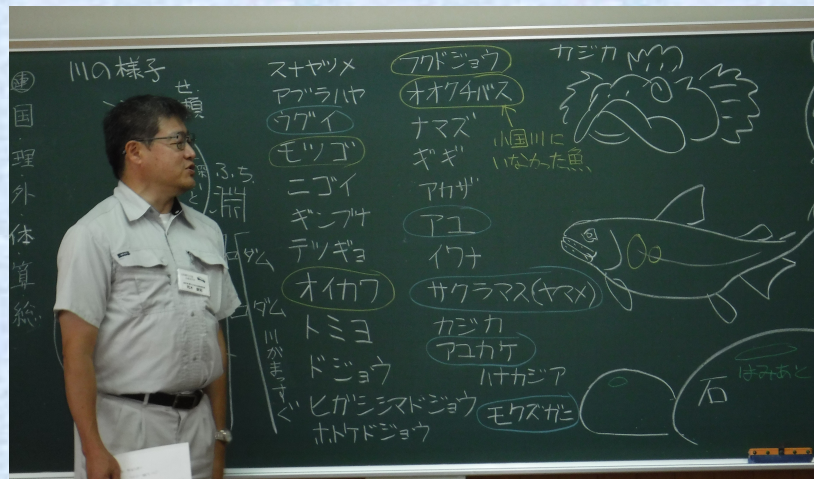 連
国
理
外
体
算
総
川の様子
せ.
瀬
ふち.
淵
ダム
ダム
川がまっすぐ
スナヤツメ
アブラハヤ
ウグイ
モツゴ
ニゴイ
ギンブナ
テツギョ
オイカワ
トミヨ
ドジョウ
ヒガシシマドジョウ
ホトケドジョウ
フクドジョウ
オオクチバス
小国川に
いなかった魚
ナマズ
ギギ
アカザ
アユ
イワナ
サクラマス(ヤマメ)
カジカ
アユカケ
ハナカジア
モクズガニ
カジカ
石
はみあと